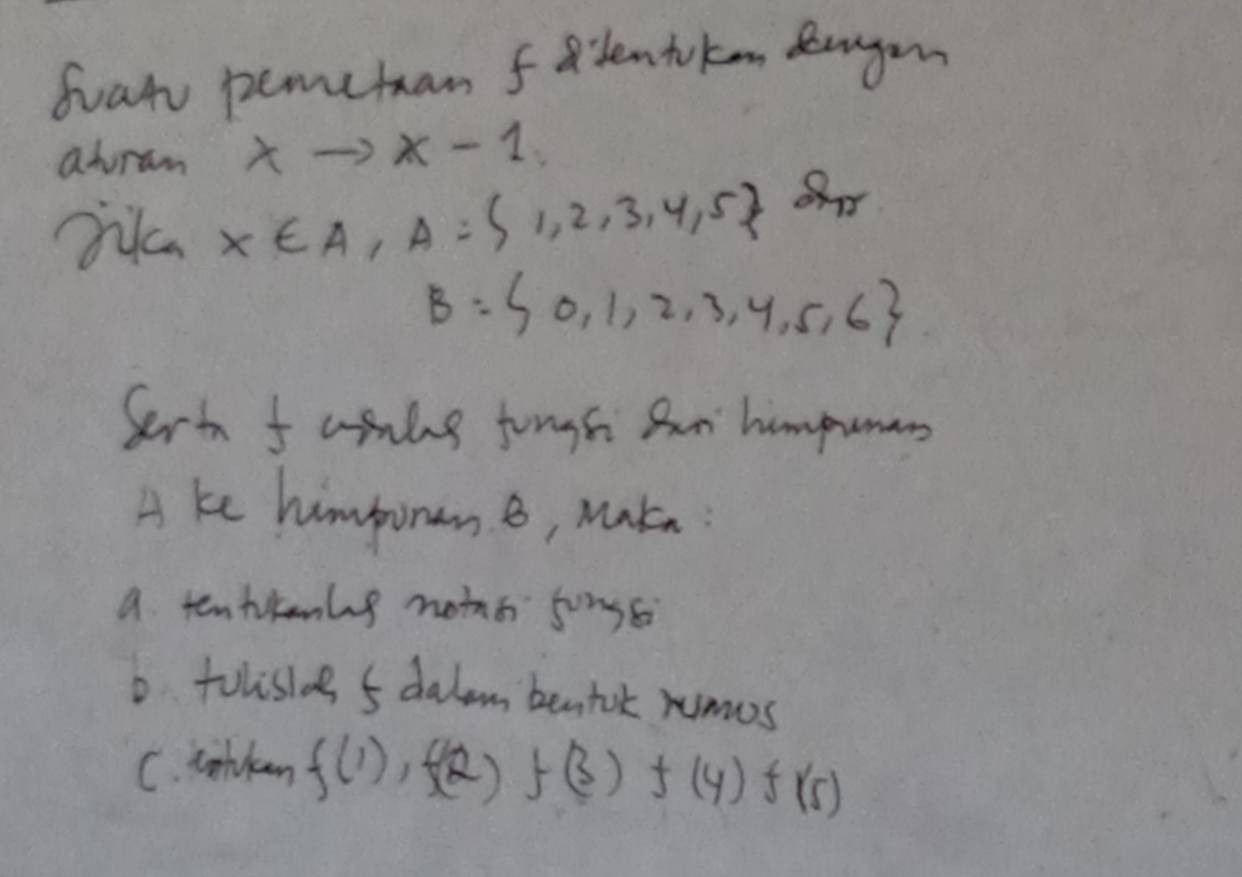 Suatu pemetaan f ditentukan dengan
aturan x → x - 1.
Jika x ∈ A, A = { 1, 2, 3, 4, 5 } dan
B = { 0, 1, 2, 3, 4, 5, 6 }
Serta f adalah fungsi dari himpunan
A ke himpunan B, Maka :
a. tentukanlah notasi fungsi
b. tulislah f dalam bentuk rumus
c. tentukan f(1), f(2) f(3) f(4) f(5)